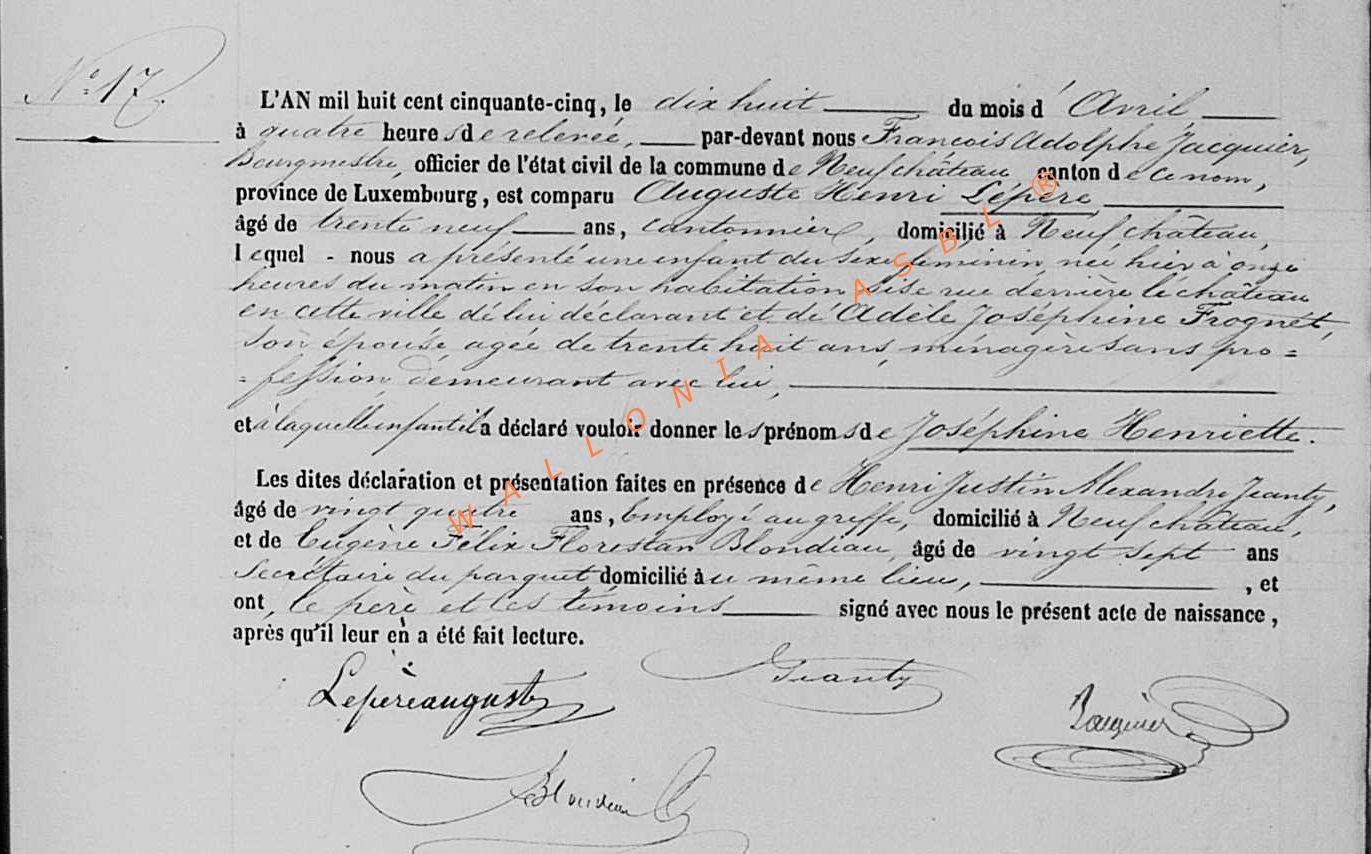 N° 17.
L'AN mil huit cent cinquante-cinq, le dix huit du mois d' Avril,
à quatre heures de relevée, par-devant nous François Adolphe Jacquier,
Bourgmestre, officier de l'état civil de la commune de Neufchâteau canton de ce nom,
province de Luxembourg, est comparu Auguste Henri Lépère,
âgé de trente neuf ans, cantonnier, domicilié à Neufchâteau,
lequel - nous a présenté une enfant du sexe féminin née hier à onze
heures du matin en son habitation sise rue derrière le château
en cette ville de lui déclarant et de Adèle Joséphine Frognét,
son épouse agée de trente huit ans, ménagère sans pro =
= fession, demeurant avec lui,
et à laquelle enfant il a déclaré vouloir donner les prénoms de Joséphine Henriette.
Les dites déclaration et présentation faites en présence de Henri Justin Alexandre Jeanty,
âgé de vingt quatre ans, Employé au greffe, domicilié à Neufchâteau,
et de Eugène Félix Florestan Blondiau, âgé de vingt sept ans
Secrétaire du parquet domicilié au même lieu, , et
ont, le père et les témoins signé avec nous le présent acte de naissance,
après qu'il leur en a été fait lecture.
Lepère auguste
Jeanty
Jacquier
Blondiau
WALLONIA ASBL ®